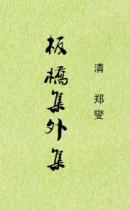 板橋集外集
清 郑燮